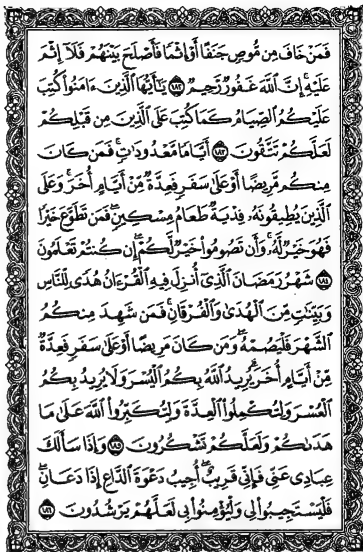 فَمَنْ خَافَ مِن مُّوصٍ جَنَفًا أَوْ إِثْمًا فَأَصْلَحَ بَيْنَهُمْ فَلَآ إِثْمَ
عَلَيْهِ ۚ إِنَّ ٱللَّهَ غَفُورٌ رَّحِيمٌ ١٨٢ يَٰٓأَيُّهَا ٱلَّذِينَ ءَامَنُوا۟ كُتِبَ
عَلَيْكُمُ ٱلصِّيَامُ كَمَا كُتِبَ عَلَى ٱلَّذِينَ مِن قَبْلِكُمْ
لَعَلَّكُمْ تَتَّقُونَ ١٨٣ أَيَّامًا مَّعْدُودَٰتٍ ۚ فَمَن كَانَ
مِنكُم مَّرِيضًا أَوْ عَلَىٰ سَفَرٍ فَعِدَّةٌ مِّنْ أَيَّامٍ أُخَرَ ۚ وَعَلَى
ٱلَّذِينَ يُطِيقُونَهُۥ فِدْيَةٌ طَعَامُ مِسْكِينٍ ۖ فَمَن تَطَوَّعَ خَيْرًا
فَهُوَ خَيْرٌ لَّهُۥ ۚ وَأَن تَصُومُوا۟ خَيْرٌ لَّكُمْ ۖ إِن كُنتُمْ تَعْلَمُونَ
١٨٤ شَهْرُ رَمَضَانَ ٱلَّذِىٓ أُنزِلَ فِيهِ ٱلْقُرْءَانُ هُدًى لِّلنَّاسِ
وَبَيِّنَٰتٍ مِّنَ ٱلْهُدَىٰ وَٱلْفُرْقَانِ ۚ فَمَن شَهِدَ مِنكُمُ
ٱلشَّهْرَ فَلْيَصُمْهُ ۖ وَمَن كَانَ مَرِيضًا أَوْ عَلَىٰ سَفَرٍ فَعِدَّةٌ
مِّنْ أَيَّامٍ أُخَرَ ۗ يُرِيدُ ٱللَّهُ بِكُمُ ٱلْيُسْرَ وَلَا يُرِيدُ بِكُمُ
ٱلْعُسْرَ وَلِتُكْمِلُوا۟ ٱلْعِدَّةَ وَلِتُكَبِّرُوا۟ ٱللَّهَ عَلَىٰ مَا
هَدَىٰكُمْ وَلَعَلَّكُمْ تَشْكُرُونَ ١٨٥ وَإِذَا سَأَلَكَ
عِبَادِى عَنِّى فَإِنِّى قَرِيبٌ ۖ أُجِيبُ دَعْوَةَ ٱلدَّاعِ إِذَا دَعَانِ ۖ
فَلْيَسْتَجِيبُوا۟ لِى وَلْيُؤْمِنُوا۟ بِى لَعَلَّهُمْ يَرْشُدُونَ ١٨٦